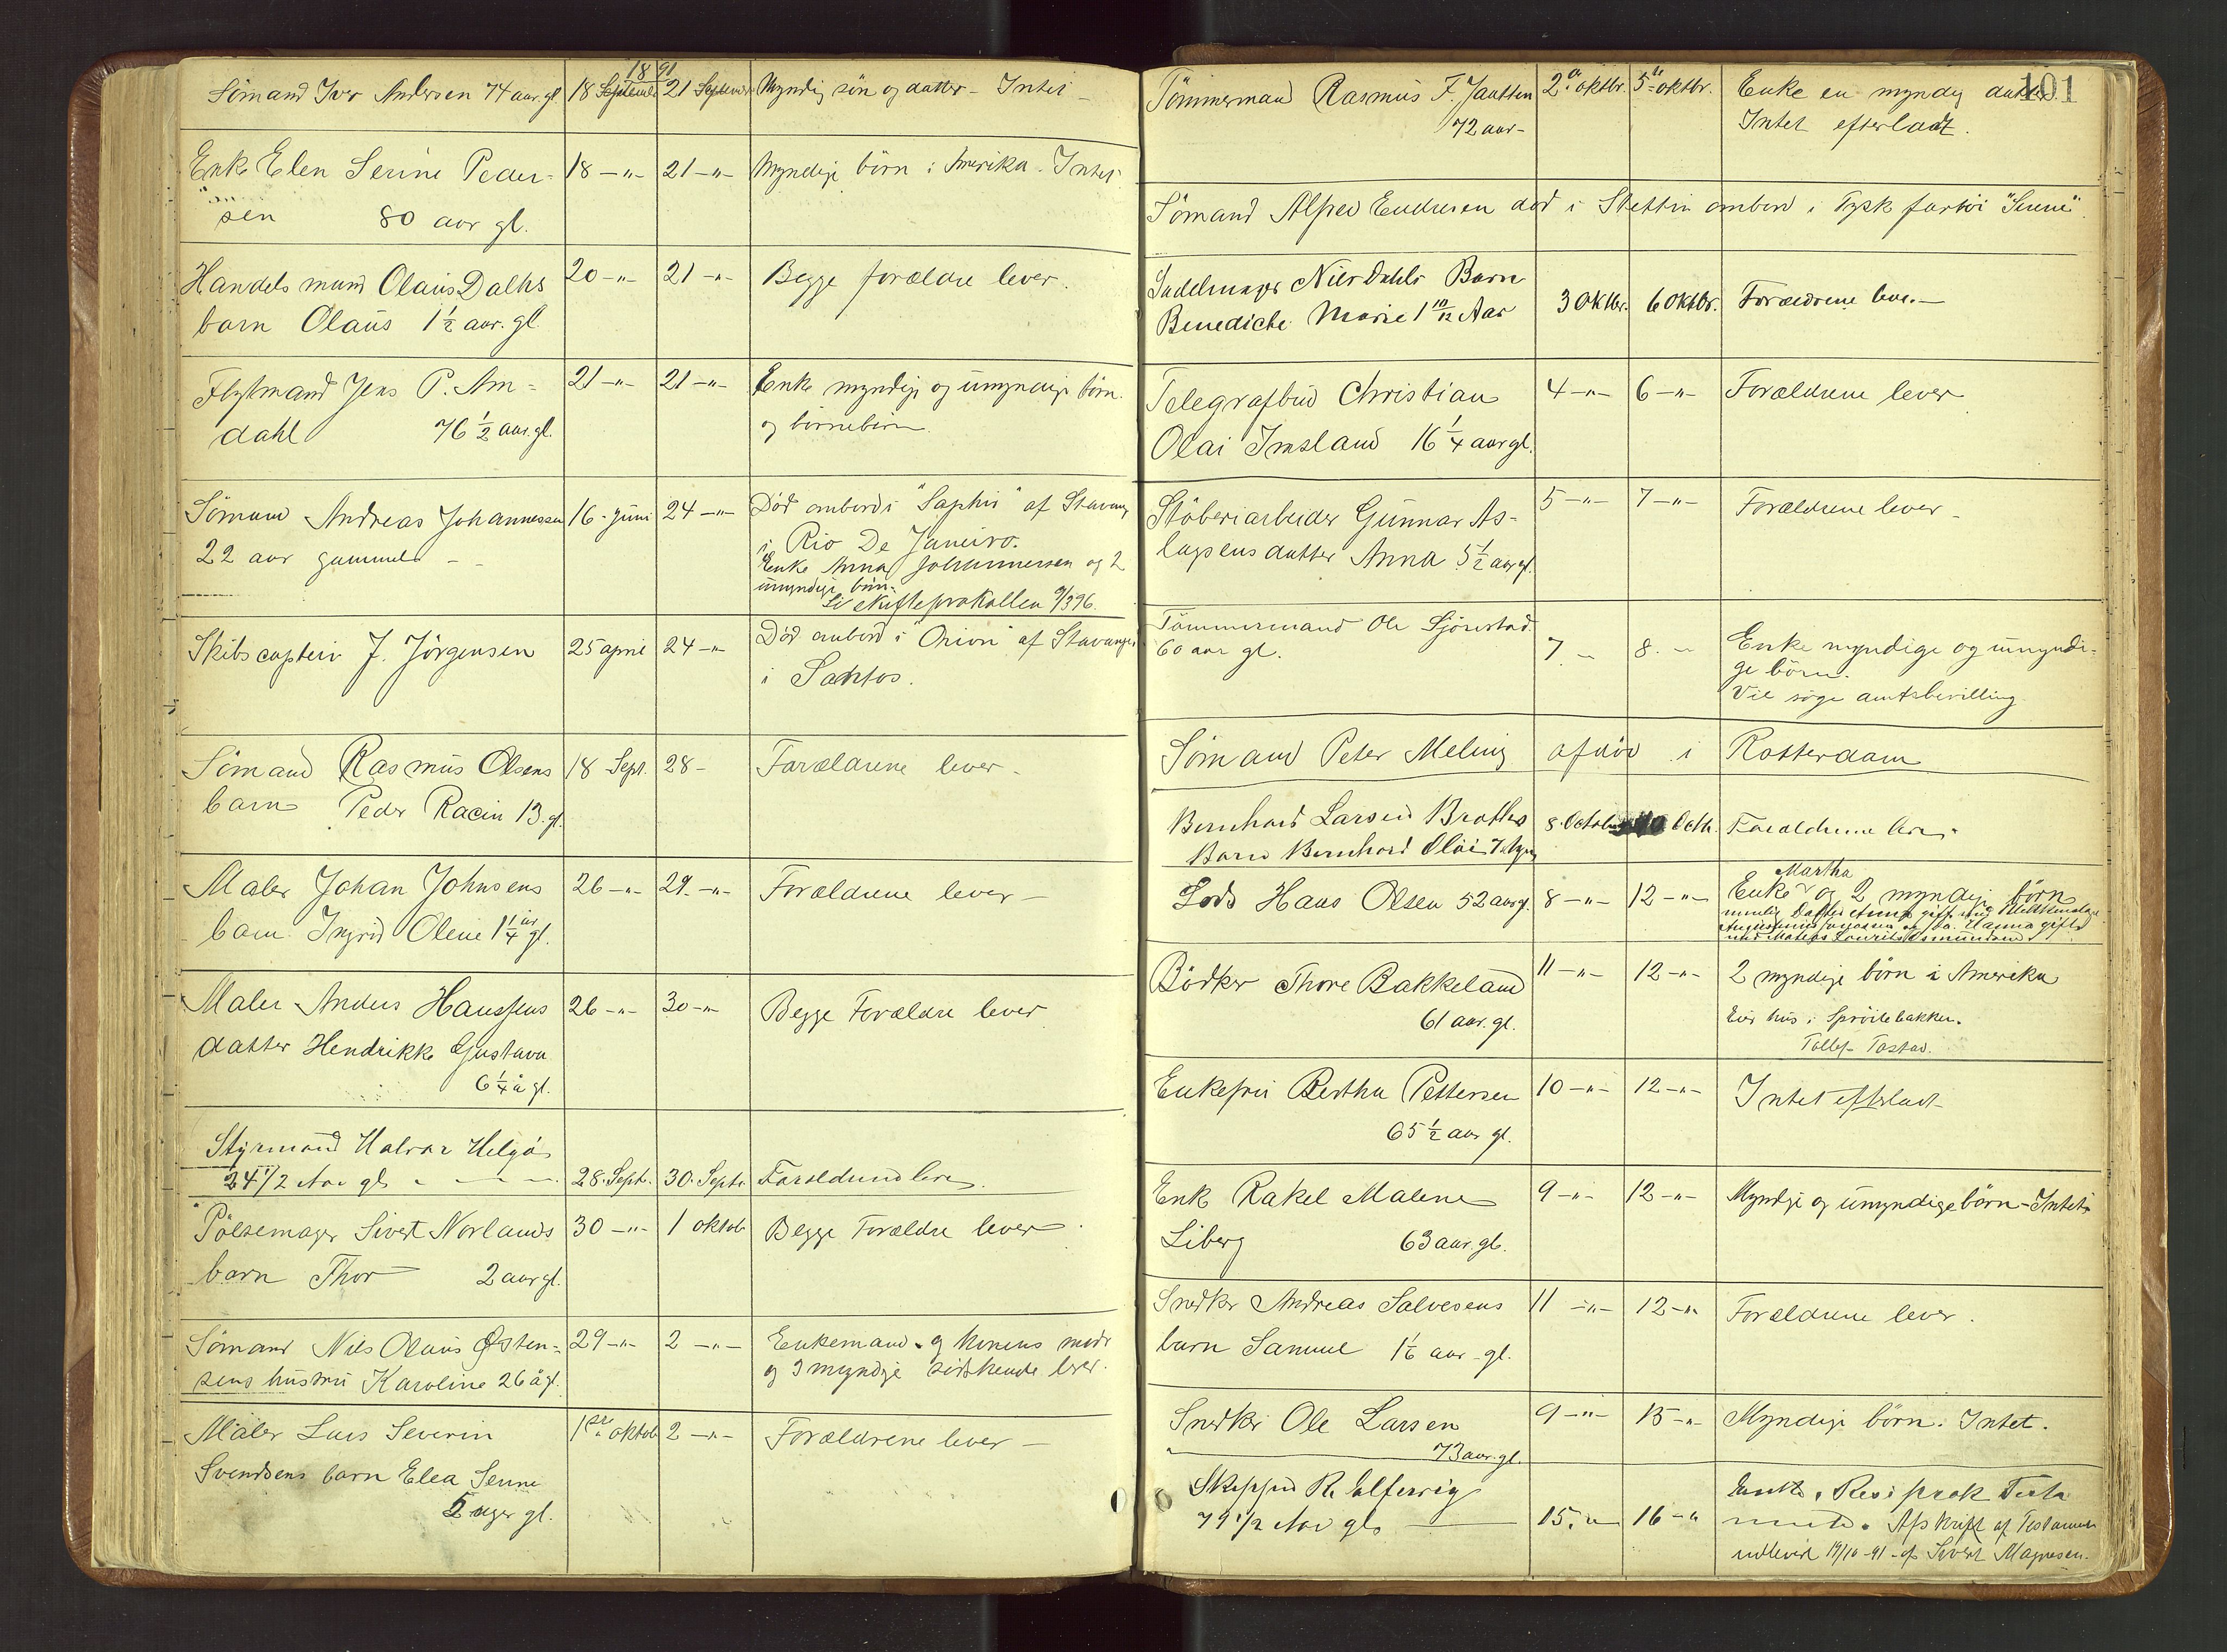 1891
Sømand Iver Andersen 74 aar. gl. 18 Septembr 21 Septembr Myndig søn og datter - Intet -
Enke Elen Serine Peder- 18 -"- 21 -"- Myndige børn i Amerika. Intet.
sen 80 aar gl.
Handelsmand Olaus Dalhs 20 -"- 21 -"- Begge forældre lever.
barn Olaus 1 1/2 aar. gl.
Jens P. Am- 21 -"- 21 -"- Enke myndige og umyndige børn.
dahl 76 1/2 aar. gl. og børnebørn.
Sømand Andreas Johannessen 16. juni 24 -"- Død ombord i "Saphir" af Stavang
22 aar gammel - - i Rio De Janeiro.
Enke Anna Johannessen og 2
umyndige børn.
Se skifteprokollen 9/396.
Skibscaptein J. Jörgensen 25 april 24 -"- Död ombord i "Orion" af Stavanger
i Santos.
Sömand Rasmus Olsens 18 Sept. 28 - Forældrene lever -
barn Peder Racin 13. gl.
Maler Johan Johnsens 26 -"- 29. -"- Forældrene lever -
barn Ingrid Olene 1 1/4 år gl.
Maler Anders Hanssens 26 -"- 30 -"- Begge Forældre lever
datter Hendrikke Gustava
6 1/4 å gl.
Styrmand Halvar Helgø
24 1/2 Aar gl. 28. Sept. 30. Septr. Forældrene lever.
Pölsemager Sivert Norlands 30 -"- 1 oktob Begge Forældre lever.
barn Thor 2 aar gl.
Sömand Nils Olaus Østen- 29 -"- 2 -"- Enkemand og konens moder
sens hustru Karoline 26 å gl. og 3 myndige södskende lever.
Maler Lars Severin 1ste oktob 2 -"- Forældrene lever -
Svendsens barn Elea Serine
5 uger gl.
101
Tömmermand Rasmus F. Jantzen 2 oktbr. 5te oktbr. Enke en myndig datter
72 aar - Intet efterladt.
Sömand Alfred Endresen död i Stettin ombord i Tysk fartöi "Senne"
Sadelmager Niels Dahls Barn
Benedicte Marie 1 10/12 Aar 3 Oktbr. 6 Oktbr. Forældrene leve. -
Telegrafbud Christian 4 -"- 6 -"- Forældrene lever
Olai Imsland 16 1/4 aar gl.
Stöberiarbeider Gunnar As- 5 -"- 7 -"- Forældrene lever -
lagsens datter Anna 5 1/2 aar gl.
Tömmermand Ole Sjörestad.
60 aar gl. 7 - 8. - Enke myndige og umyndi-
ge börn.
Vil söge amtsbevilling
Sömand Peter Meling afdöd i Rotterdam
Bernhard Larsen Braathes 8. October 10 Octb. Forældrene lever.
Barn Bernhard Olai 7 Uger
Lods Hans Olsen 52 aar gl. 8 -"- 12 -"- Enke Martha og 2 myndige börn
nemlig Datter Anna gift med
Hanna gift
med Laurits Osmundsen
Bödker Thore Bakkeland 11 -"- 12 -"- 2 myndige börn i Amerika
61 aar. gl. Eier hus i Spröitebakken.
Tollef Tastad.
Enkefru Bertha Pettersen 10 -"- 12 -"- Intet efterladt -
65 1/2 aar gl.
Enke Rakel Malene 9 -"- 12 -"- Myndige og umyndige börn - Intet
Liberg 63 aar. gl.
Snedker Andreas Salvesens 11 -"- 12 -"- Forældrene lever.
barn Samuel 1 1/6 aar - gl.
Snedker Ole Larsen 9 -"- 15 -"- Myndige börn. Intet.
73 aar. gl.
Skipper R. Elfervig Enke. Resiprok Testa
79 1/2 Aar gl. 15. " 16 -" mente. Afskrift af Testament
udleveret 19/10 - 91 - af Sivert Magnesen.